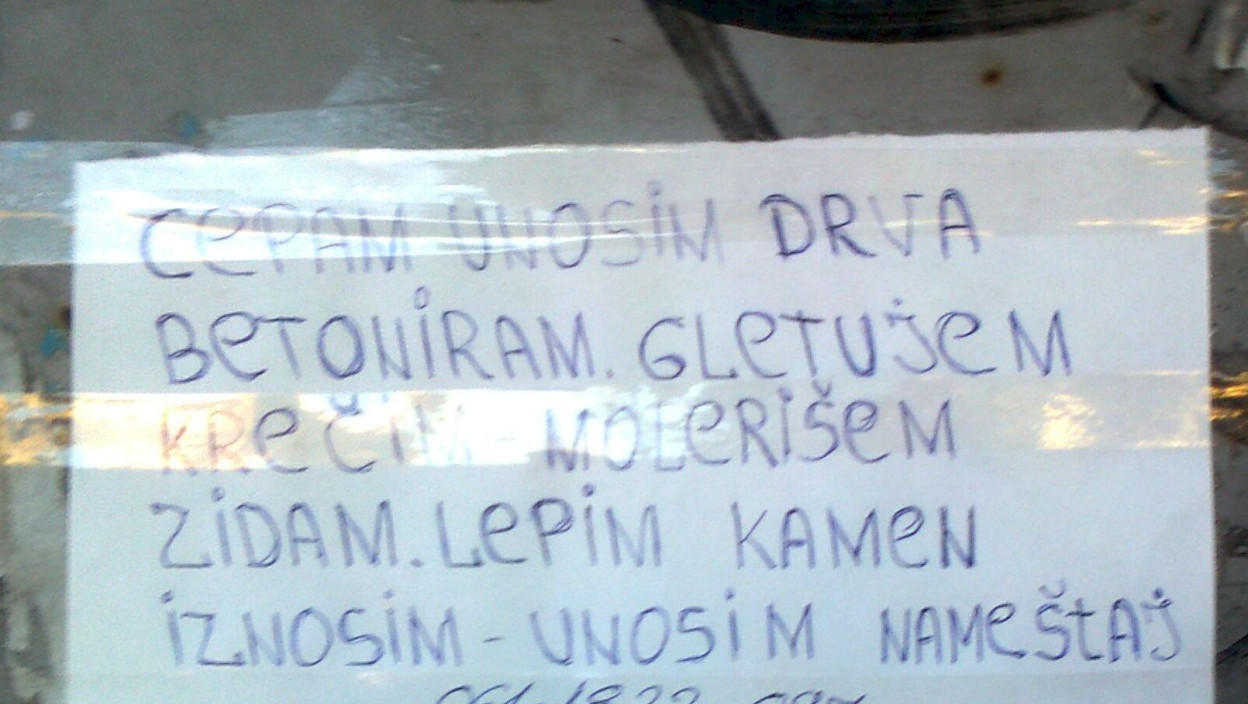 CEPAM UNOSIM DRVA
BETONIRAM. GLETUJEM
KREČIM - MOLERIŠEM
ZIDAM. LEPIM KAMEN
IZNOSIM - UNOSIM NAMEŠTAJ